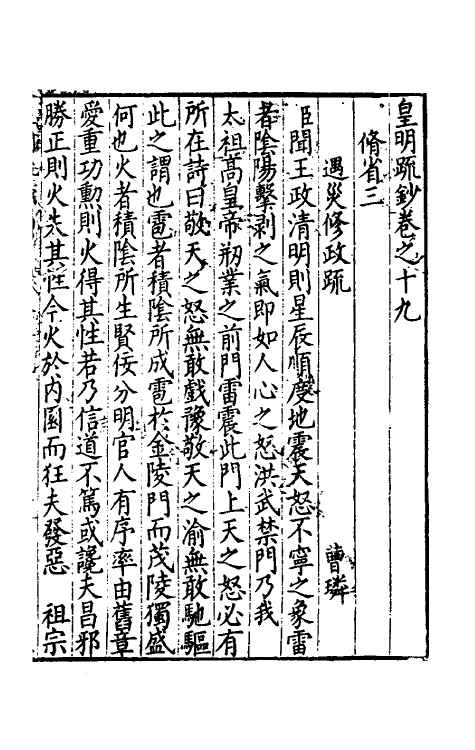 皇明疏鈔卷之十九
脩省三
遇災修政疏　曹璘
臣聞王政清明則星辰順度地震天怒不寧之象雷
者陰陽擊剥之氣即如人心之怒洪武禁門乃我
太祖高皇帝剏業之前門雷震此門上天之怒必有
所在詩曰敬天之怒無敢戲豫敬天之渝無敢馳驅
此之謂也雹者積陰所成雹於金陵門而茂陵獨盛
何也火者積陰所生賢佞分明官人有序率由舊章
愛重功勲則火得其性若乃信道不篤或讒夫昌邪
勝正則火失其性今火於内園而狂夫發惡　祖宗